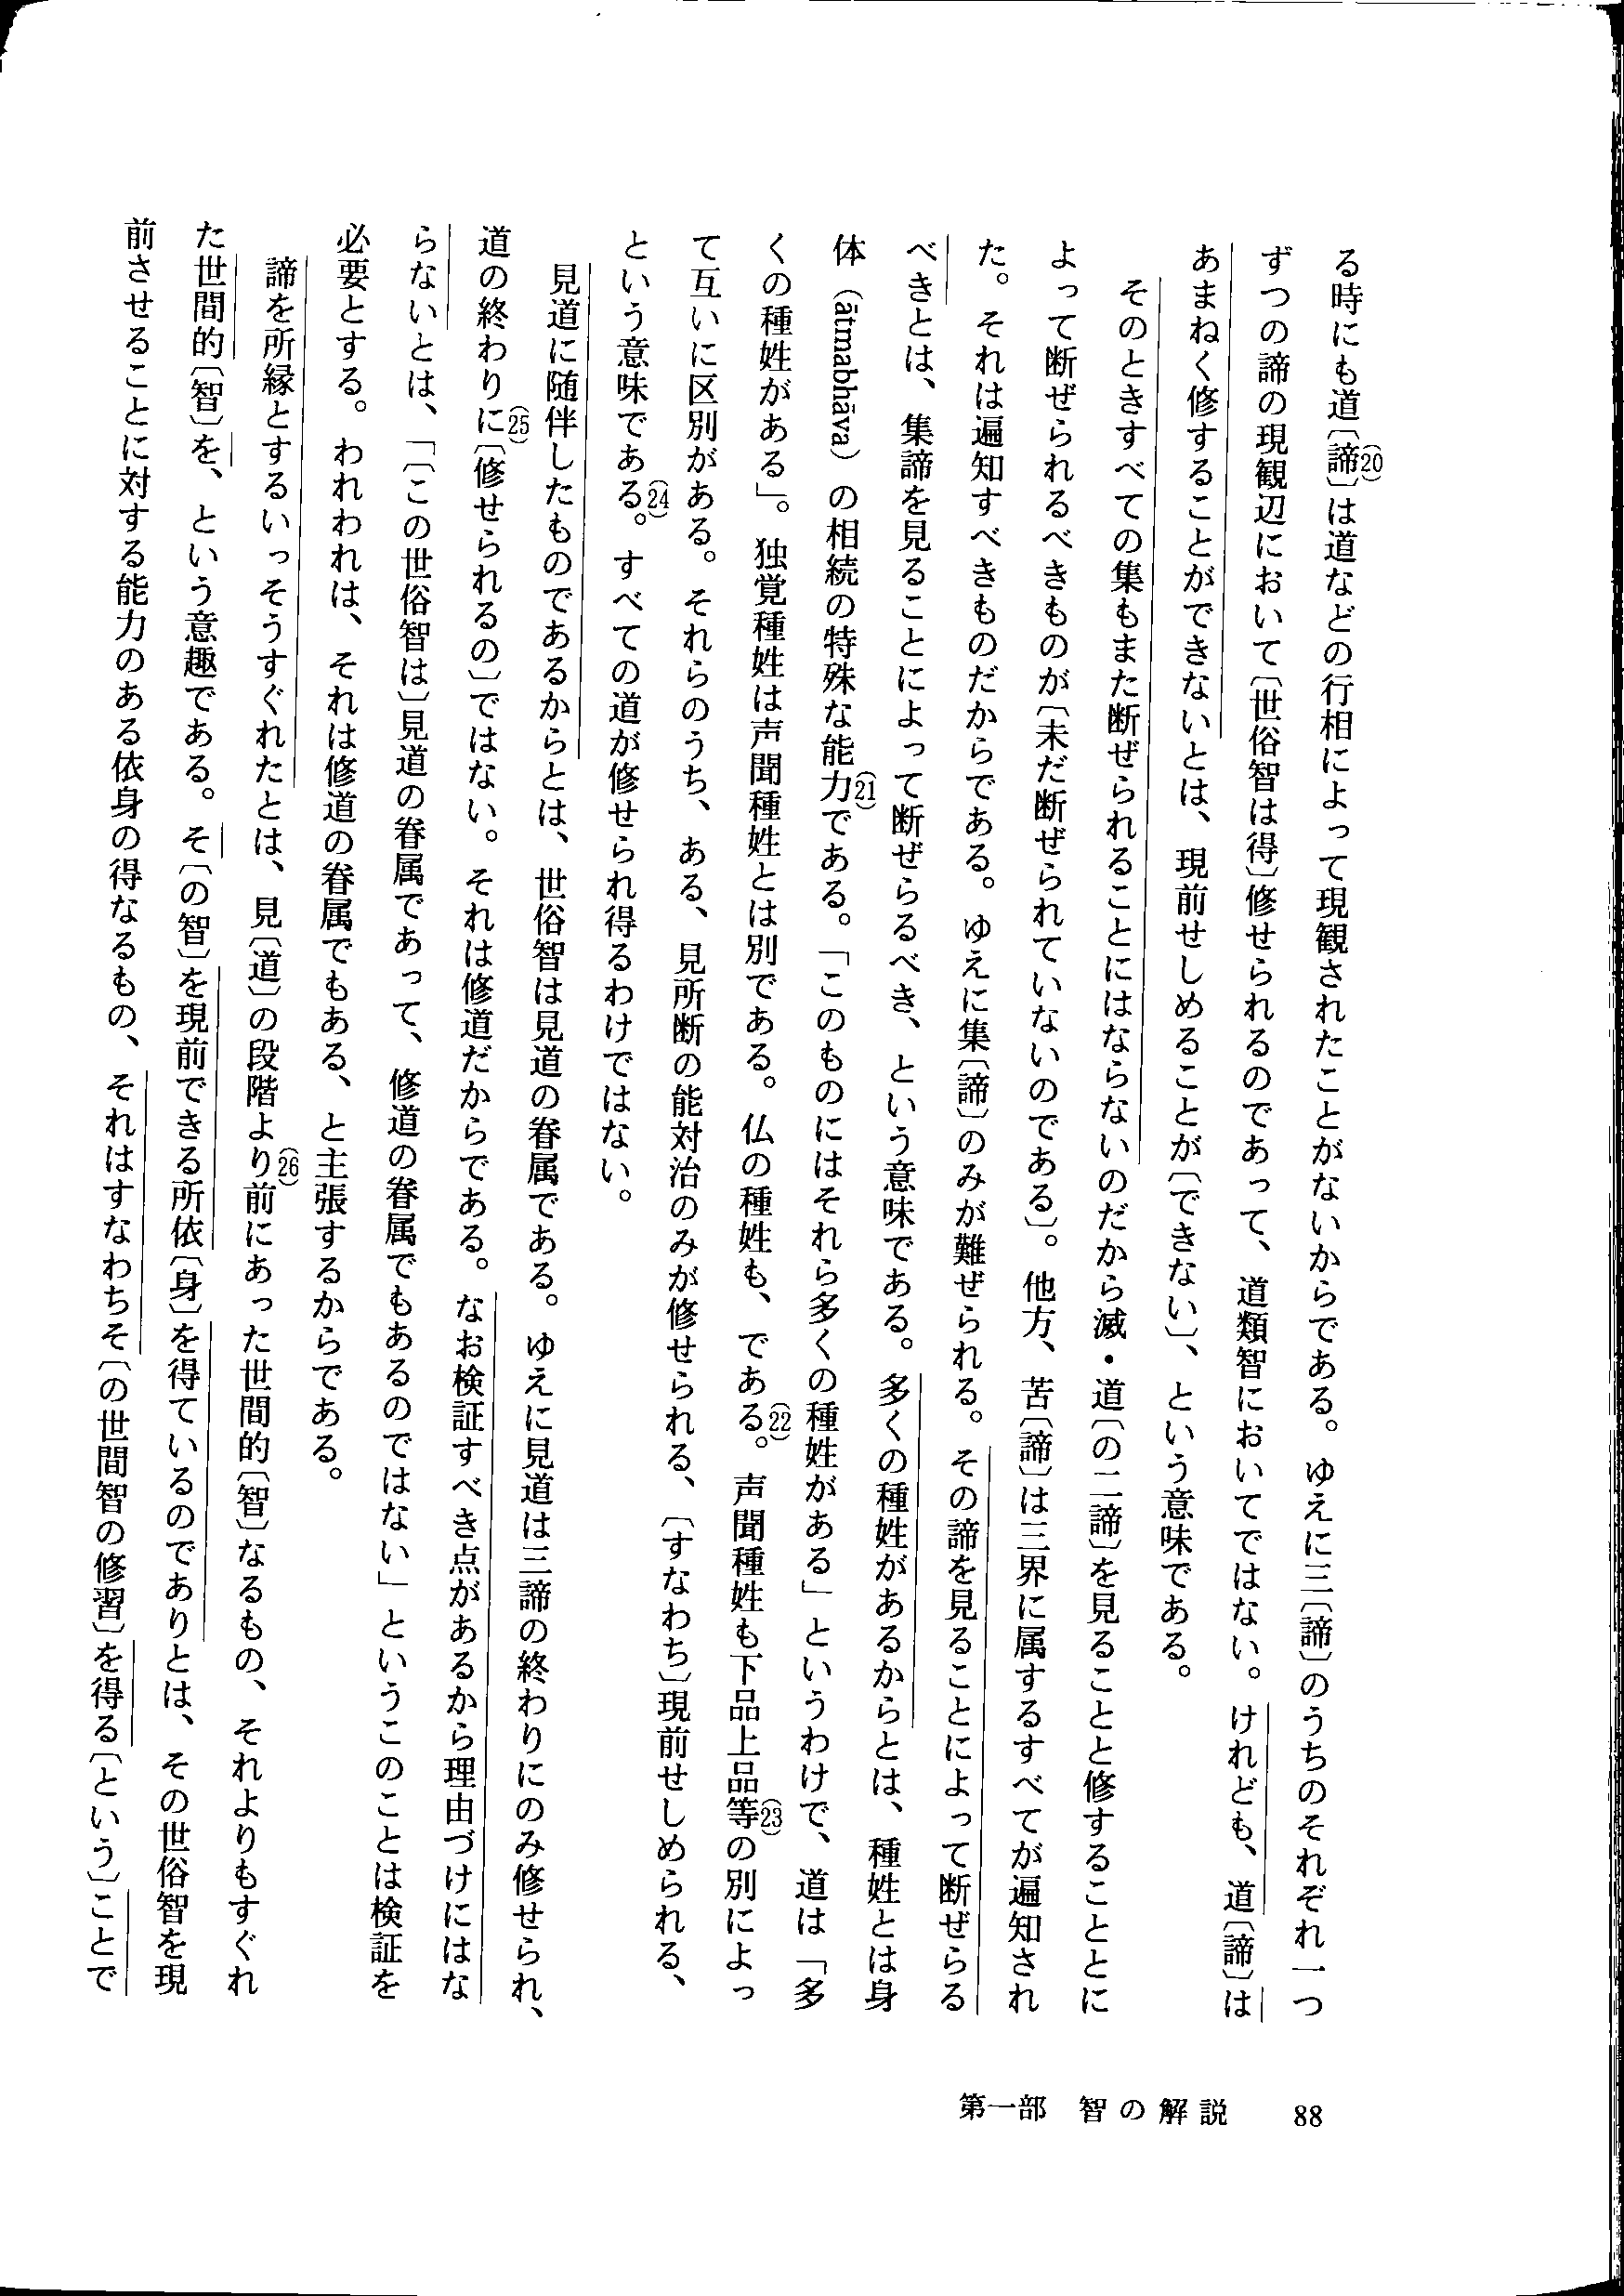 る時にも道〔諦〕(20)は道などの行相によって現観されたことがないからである。ゆえに三〔諦〕のうちのそれぞれ一つ
ずつの諦の現観辺において〔世俗智は得〕修せられるのであって、道類智においてではない。けれども、道〔諦〕は
あまねく修することができないとは、現前せしめることが〔できない〕、という意味である。
そのときすべての集もまた断ぜられることにはならないのだから滅・道〔の二諦〕を見ることと修することとに
よって断ぜられるべきものが〔未だ断ぜられていないのである〕。他方、苦〔諦〕は三界に属するすべてが遍知され
た。それは遍知すべきものだからである。ゆえに集〔諦〕のみが難ぜられる。その諦を見ることによって断ぜらる
べきとは、集諦を見ることによって断ぜらるべき、という意味である。多くの種姓があるからとは、種姓とは身
体（ātmabhāva）の相続の特殊な能力(21)である。「このものにはそれら多くの種姓がある」というわけで、道は「多
くの種姓がある」。独覚種姓は声聞種姓とは別である。仏の種姓も、である(22)。声聞種姓も下品上品等(23)の別によっ
て互いに区別がある。それらのうち、ある、見所断の能対治のみが修せられる、〔すなわち〕現前せしめられる、
という意味である(24)。すべての道が修せられ得るわけではない。
見道に随伴したものであるからとは、世俗智は見道の眷属である。ゆえに見道は三諦の終わりにのみ修せられ、
道の終わりに(25)〔修せられるの〕ではない。それは修道だからである。なお検証すべき点があるから理由づけにはな
らないとは、「〔この世俗智は〕見道の眷属であって、修道の眷属でもあるのではない」というこのことは検証を
必要とする。われわれは、それは修道の眷属でもある、と主張するからである。
諦を所縁とするいっそうすぐれたとは、見〔道〕の段階より(26)前にあった世間的〔智〕なるもの、それよりもすぐれ
た世間的〔智〕を、という意趣である。そ〔の智〕を現前できる所依〔身〕を得ているのでありとは、その世俗智を現
前させることに対する能力のある依身の得なるもの、それはすなわちそ〔の世間智の修習〕を得る〔という〕ことで
第一部　智の解説
88